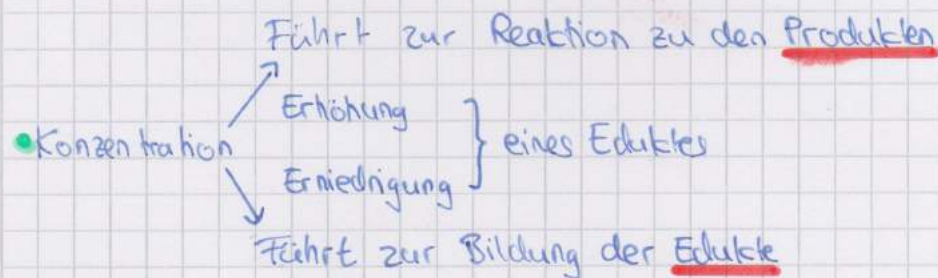 Führt zur Reaktion zu den Produkten
Erhöhung
• Konzentration
eines Eduktes
Erniedrigung
Führt zur Bildung der Edukte